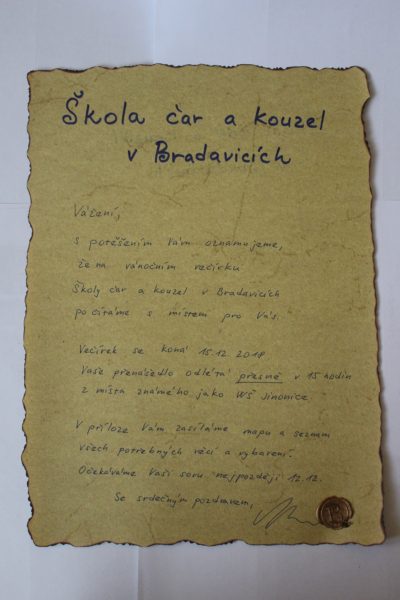 Škola čar a kouzel
v Bradavicích
Vážení,
s potěšením Vám oznamujeme,
že na vánočním večírku
Školy čar a kouzel v Bradavicích
počítáme s místem pro Vás.
Večírek se koná 15.12.2018
Vaše přenášedlo odlétá přesně v 15 hodin
z místa známého jako WŠ Jinonice
V příloze Vám zasíláme mapu a seznam
všech potřebných věcí a vybavení.
Očekáváme Vaši sovu nejpozději 12.12.
Se srdečným pozdravem,